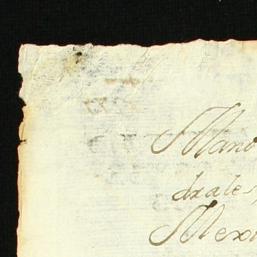 Mano
drales
Mexi